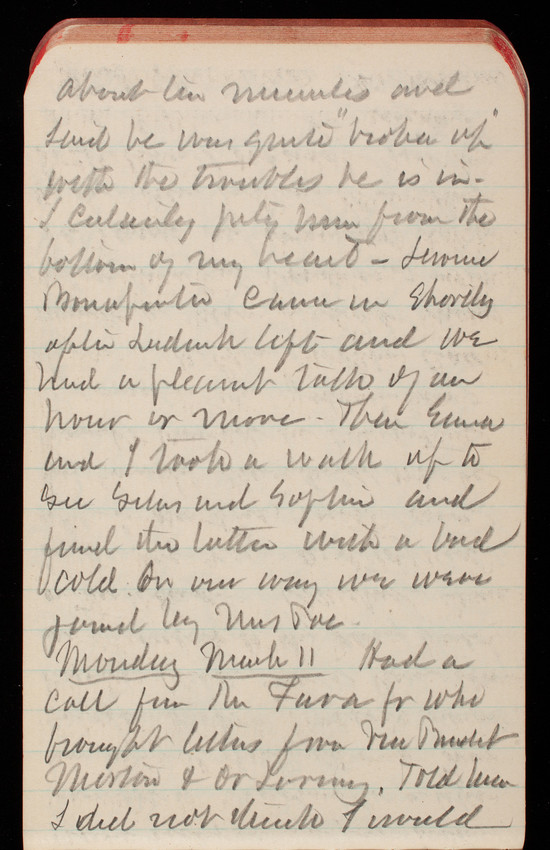 about ten minutes and
said he was quite "broken up"
with the troubles he is in -
I certainly pity him from the
bottom of my heart - Jerome
Bonaparte came in shortly
after left and we
had a pleasant talk of an
hour or more - Then Emma
and I took a walk up to
see Silas and Sophie and
find the latter with a bad
cold. On our way we were
joined by Mrs Poe.
Monday March 11 Had a
call from Dr Fava Jr who
brought letters from Vice Prendt
Morton & Dr Loring. Told him
I did not think I would